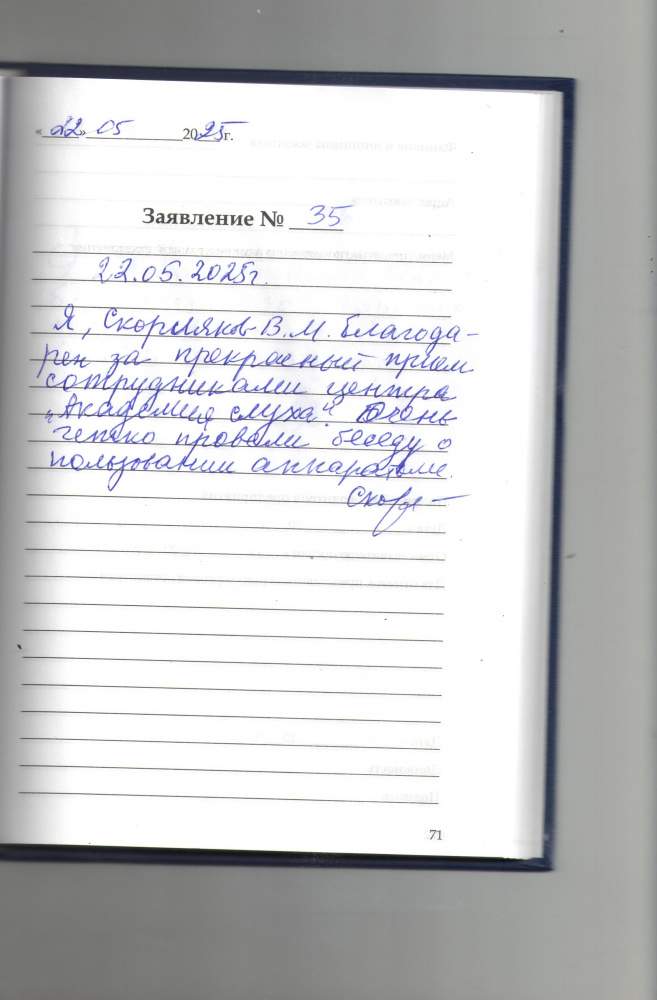 «22» 05 2025г.
Заявление № 35
22.05.2025г.
Я, Скорняков В.М. благода-
рен за прекрасный прием
сотрудниками центра
"Академия слуха". Очень
четко провели беседу о
пользовании аппаратами.
71